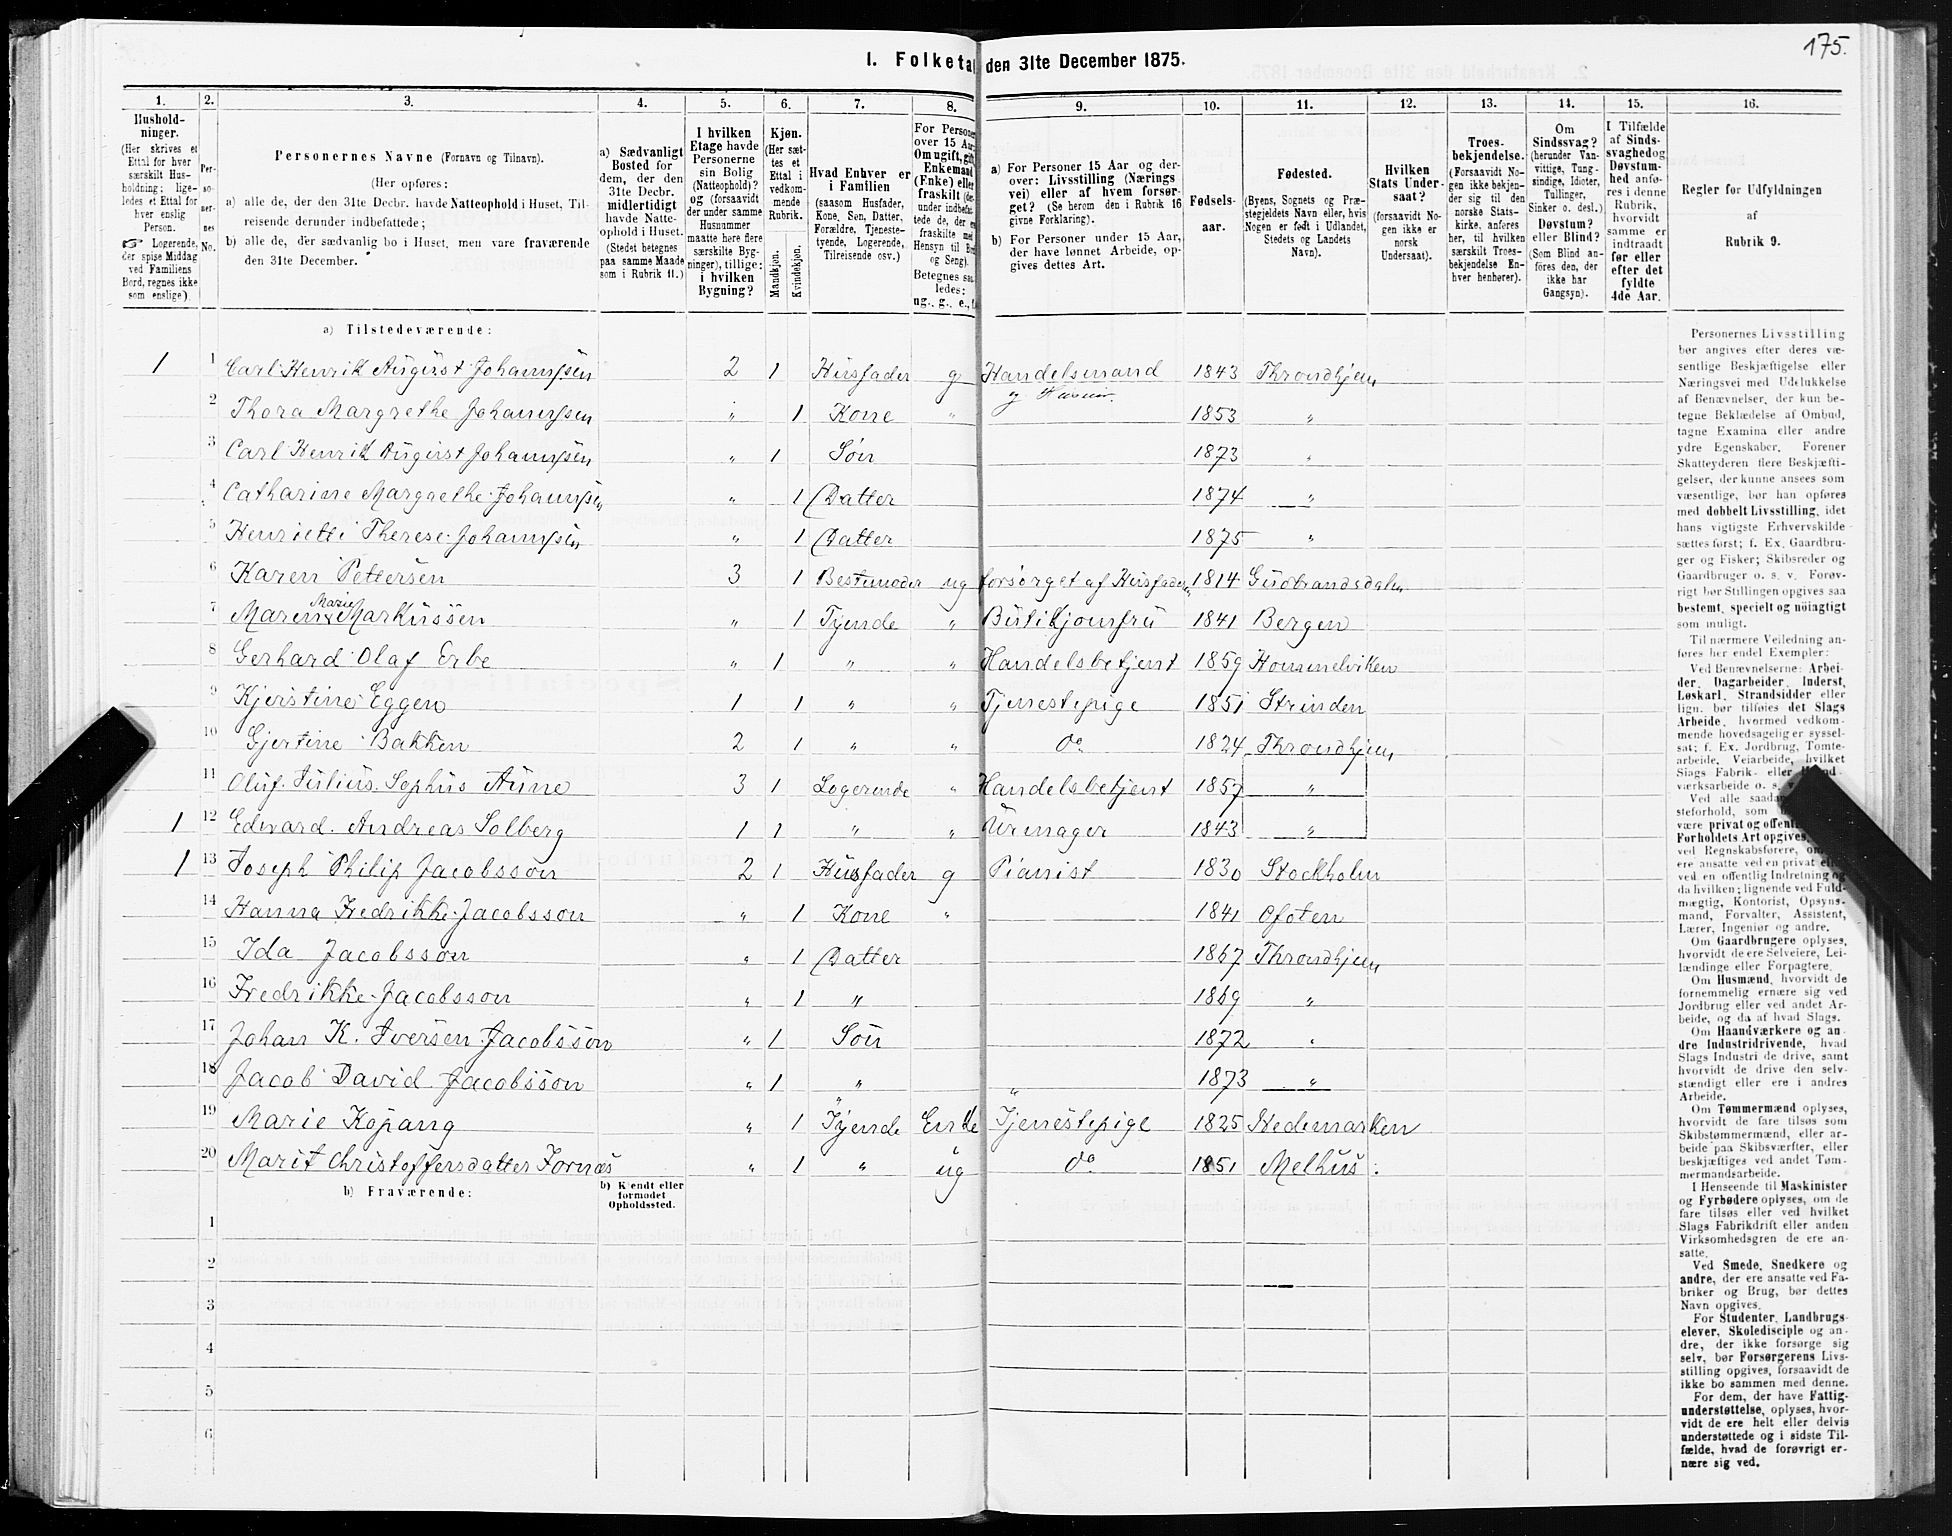 175.
I. Folketa den 31te December 1875.
1. 2. 3. 4. 5. 6. 7. 8. 9. 10. 11. 12. 13. 14. 15. 16.
Hushold-
ninger.
(Her skrives et
Ettal for hver
særskilt Hus-
holdning; lige-
ledes et Ettal for
hver enslig
Person.
☞ Logerende,
der spise Middag
ved Familiens
Bord, regnes ikke
som enslige).
Per-
so-
ner-
nes
No.
Personernes Navne (Fornavn og Tilnavn).
(Her opføres:
a) alle de, der den 31te Decbr. havde Natteophold i Huset, Til-
reisende derunder indbefattede;
b) alle de, der sædvanlig bo i Huset, men vare fraværende
den 31te December.
a) Sædvanligt
Bosted for
dem, der den
31te Decbr.
midlertidigt
havde Natte-
ophold i Huset.
(Stedet betegnes
paa samme Maade
som i Rubrik 11.)
I hvilken
Etage havde
Personerne
sin Bolig
(Natteophold)?
og (forsaavidt
der under samme
Husnummer
maatte høre flere
særskilte Byg-
ninger), tillige:
i hvilken
Bygning?
Kjøn.
(Her sæt-
tes et
Ettal i
vedkom-
mende
Rubrik.
Mandkjøn.
Kvindekjøn.
Hvad Enhver er
i Familien
(saasom Husfader,
Kone, Søn, Datter,
Forældre, Tjeneste-
tyende, Logerende,
Tilreisende osv.)
For Persone
over 15 Aar
Om ugift, gift
Enkemand
(Enke) eller
fraskilt (de
under indbefat-
tede de, der e
fraskilte med
Hensyn til Bo
og Seng).
Betegnes saa
ledes:
ug., g., e., f.
a) For Personer 15 Aar og der-
over: Livsstilling (Nærings
vei) eller af hvem forsør-
get? (Se herom den i Rubrik 16
givne Forklaring).
b) For Personer under 15 Aar,
der have lønnet Arbeide, op-
gives dettes Art.
Fødsels-
aar.
Fødested.
(Byens, Sognets og Præ-
stegjeldets Navn eller, hvis
Nogen er født i Udlandet,
Stedets og Landets
Navn).
Hvilken
Stats Under-
saat?
(forsaavidt No-
gen ikke er
norsk
Undersaat).
Troes-
bekjendelse.
(Forsaavidt No-
gen ikke bekjen-
der sig til den
norske Stats-
kirke, anføres
her, til hvilken
særskilt Troes-
bekjendelse En-
hver henhører).
Om
Sindssvag?
(herunder Van-
vittige, Tung-
sindige, Idioter,
Tullinger,
Sinker o. desl.)
Døvstum?
eller Blind?
(Som Blind an-
føres den, der
ikke har
Gangsyn).
I Tilfælde
af Sinds-
svaghed og
Døvstum-
hed anfø-
res i denne
Rubrik,
hvorvidt
samme er
indtraadt
før eller
efter det
fyldte
4de Aar.
Regler for Udfyldningen
af
Rubrik 9.
a) Tilstedeværende:
1 1 Carl Henrik August Johannssen 2 1 Husfader g Handelsmand 1843 Throndhjem
2 Thora Margrethe Johannssen " 1 Kone " 1853 "
3 Carl Henrik August Johannssen " 1 Søn 1873 "
4 Catharine Margrethe Johannssen " 1 Datter 1874 "
5 Henriette Therese Johannssen " 1 Datter 1875 "
6 Karen Pettersen 3 1 Bestemoder ug forsørget af Husfaderen 1814 Gudbrandsdalen
7 Maren Marie Markussen " 1 Tyende " Butikjomfru 1841 Bergen
8 Gerhard Olaf Erbe " 1 " " Handelsbetjent 1859 Hommelviken
9 Kjerstine Eggen 1 1 " " Tjenestepige 1851 Strinden
10 Gjertine Bakken 2 1 " " do 1824 Throndhjem
11 Oluf Julius Sophus Aune 3 1 Logerende " Handelsbetjent 1857 "
1 12 Edvard Andreas Solberg 1 1 " " Uremager 1843 "
1 13 Joseph Philip Jacobsson 2 1 Husfader g Pianist 1830 Stockholm
14 Hanna Fredrikke Jacobsson " 1 Kone " 1841 Ofoten
15 Ida Jacobsson " 1 Datter 1867 Throndhjem
16 Fredrikke Jacobsson " 1 " 1869 "
17 Johan K. Iversen Jacobsson " 1 Søn 1872 "
18 Jacob David Jacobsson " 1 " " 1873 "
19 Marie Kopang " 1 Tyende Enke Tjenestepige 1825 Hedemarken
20 Marit Christoffersdatter Fornæs " 1 " ug do 1851 Melhus.
b) Fraværende:
b) Kjendt eller
formodet
Opholdssted.
1
2
3
4
5
6
Personernes Livsstilling
bør angives efter deres væ-
sentlige Beskjæftigelse eller
Næringsvei med Udelukkelse
af Benævnelser, der kun be-
tegne Beklædelse af Ombud,
tagne Examina eller andre
ydre Egenskaber. Forener
Skatteyderen flere Beskjæfti-
gelser, der kunne ansees som
væsentlige, bør han opføres
med dobbelt Livsstilling, idet
hans vigtigste Erhvervskilde
sættes først; f. Ex. Gaardbru-
ger og Fisker; Skibsreder og
Gaardbruger o. s. v. Forøv-
rigt bør Stillingen opgives saa
bestemt, specielt og nöiagtigt
som muligt.
Til nærmere Veiledning an-
føres her endel Exempler:
Ved Benævnelserne: Arbei-
der, Dagarbeider, Inderst,
Løskarl, Strandsidder eller
lign. bør tilføies det Slags
Arbeide, hvormed vedkom-
mende hovedsagelig er syssel-
sat; f. Ex. Jordbrug, Tomte-
arbeide, Veiarbeide, hvilket
Slags Fabrik- eller
værksarbeide o. s.
Ved alle
være privat og
Forholdets Art opgives,
ved Regnskabsførere,
ere ansatte ved en privat
ved en offentlig Indretning og
da hvilken; lignende ved Fuld-
mægtig, Kontorist, Opsyns-
mand, Forvalter, Assistent,
Lærer, Ingeniør og andre.
Om Gaardbrugere oplyses,
hvorvidt de ere Selveiere, Lei-
lændinge eller Forpagtere.
Om Husmænd, hvorvidt de
fornemmelig ernære sig ved
Jordbrug eller ved andet Ar-
beide, og da af hvad Slags.
Om Haandværkere og an-
dre Industridrivende, hvad
Slags Industri de drive, samt
hvorvidt de drive den selv-
stændigt eller ere i andres
Arbeide.
Om Tømmermænd oplyses,
hvorvidt de fare tilsøs som
Skibstømmermænd, eller ar-
beide paa Skibsværfter, eller
beskjæftiges ved andet Tøm-
mermandsarbeide.
I Henseende til Maskinister
og Fyrbødere oplyses, om de
fare tilsøs eller ved hvilket
Slags Fabrikdrift eller anden
Virksomhedsgren de ere an-
satte.
Ved Smede, Snedkere og
andre, der ere ansatte ved Fa-
briker og Brug, bør dettes
Navn opgives.
For Studenter, Landbrugs-
elever, Skoledisciple og an-
dre, der ikke forsørge sig
selv, bør Forsørgerens Livs-
stilling opgives, forsaavidt de
ikke bo sammen med denne.
For dem, der have Fattig-
understøttelse, oplyses, hvor-
vidt de ere helt eller delvis
understøttede og i sidste Til-
fælde, hvad de forøvrigt er-
nære sig ved.